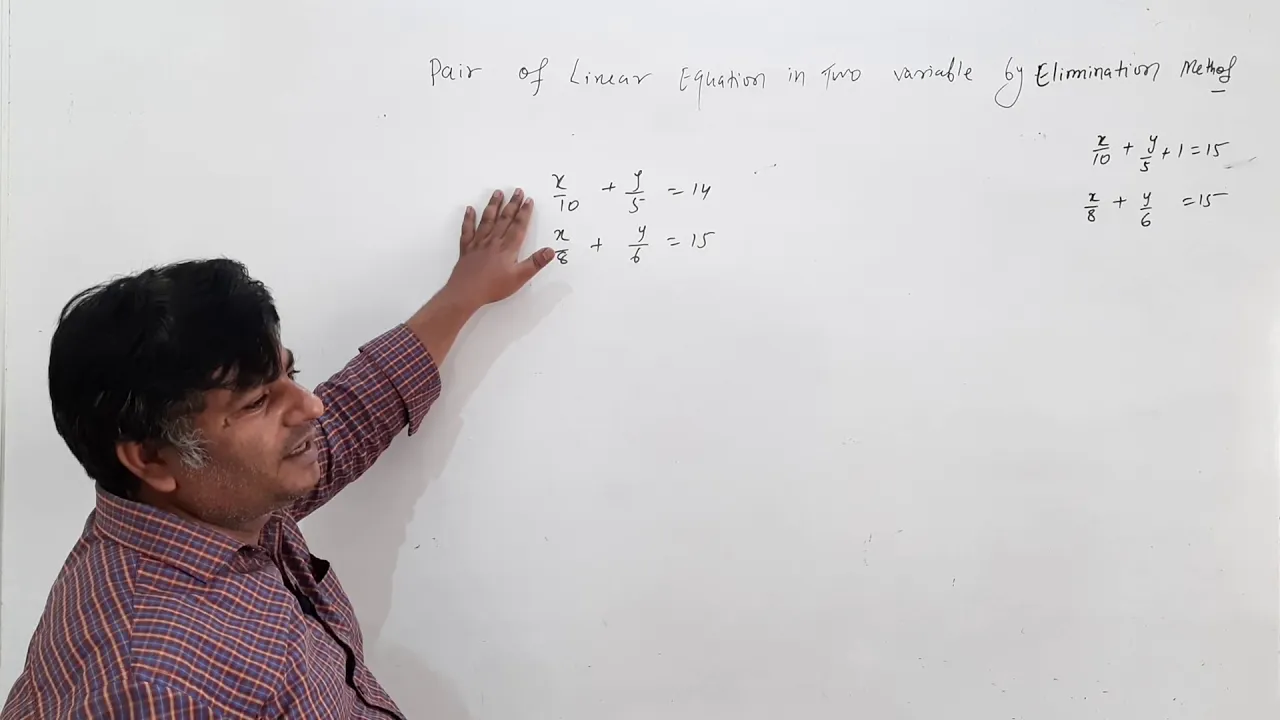 Pair of Linear Equation in Two variable by Elimination Method
x/10 + y/5 = 14
x/8 + y/6 = 15
x/10 + y/5 + 1 = 15
x/8 + y/6 = 15